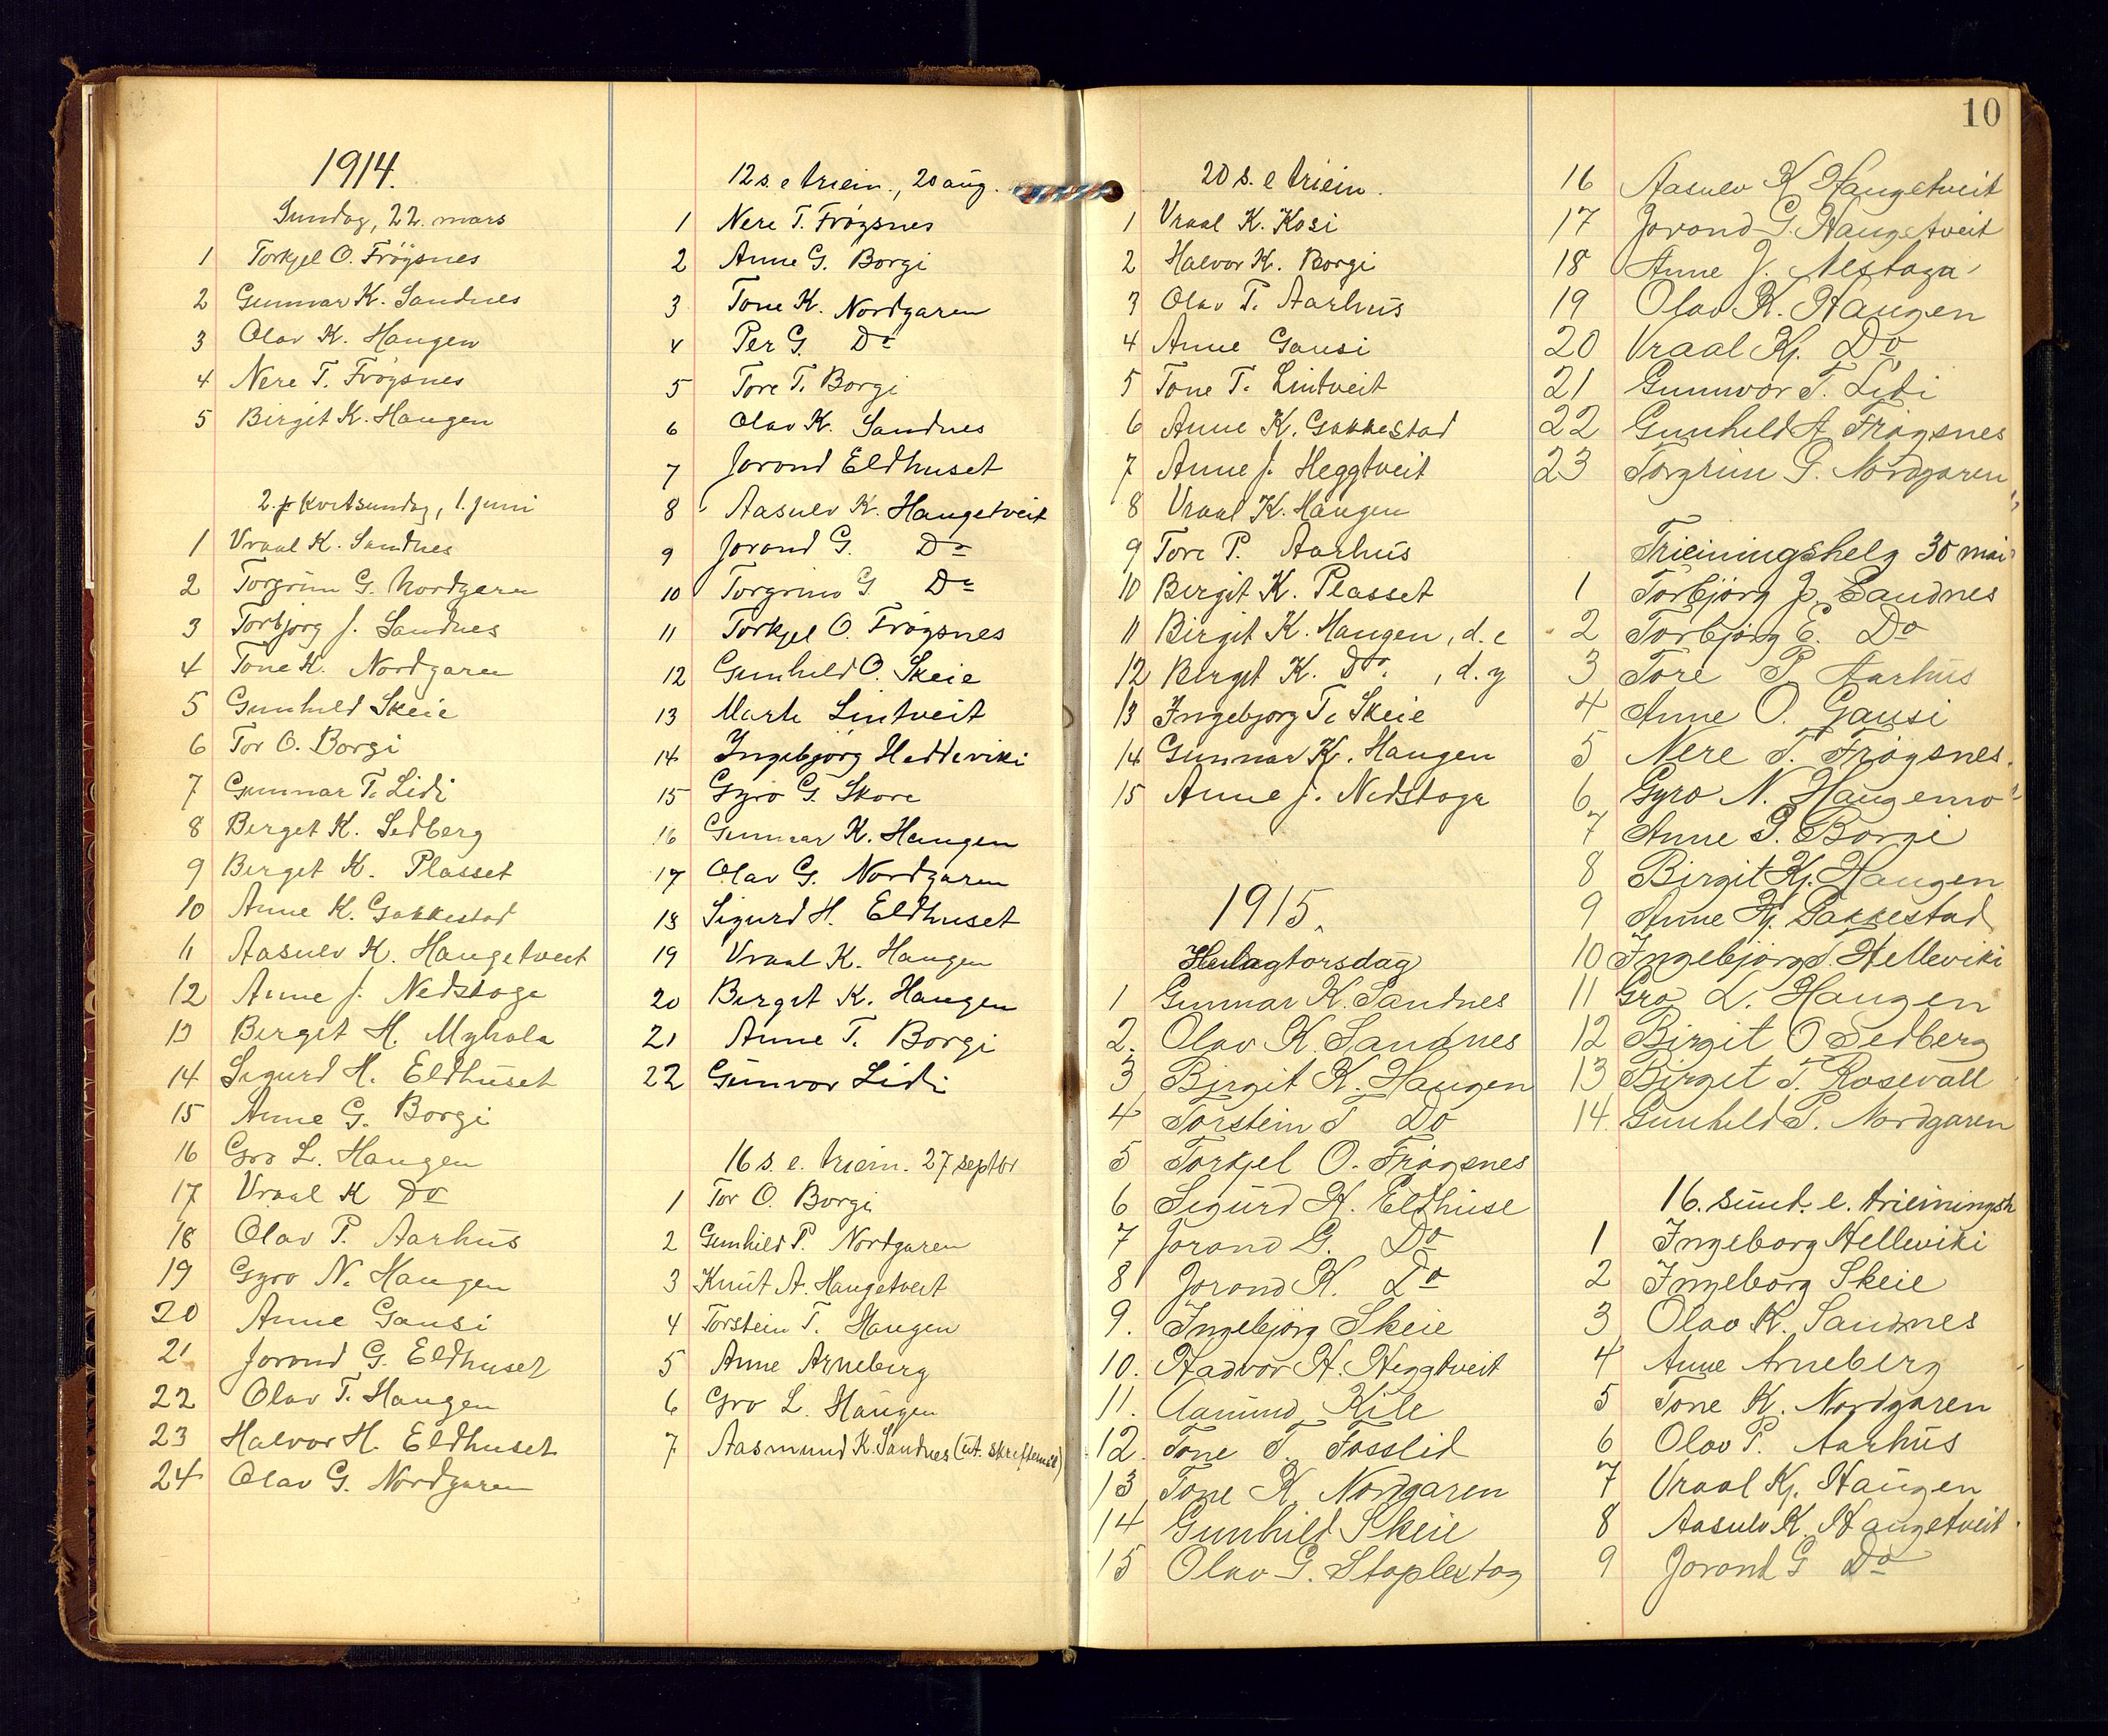 1914.
Sundag, 22. mars
1 Torkjel O. Frøysnes
2 Gunnar K. Sandnes
3 Olav K. Haugen
4 Nere T. Frøysnes
5 Birgit K. Haugen
2. kvitsundag, 1. juni
1 Vraal K. Sandnes
2 Torgrim G. Nordgaren
3 Torbjørg J. Sandnes
4 Tone K. Nordgaren
5 Gunhild Skeie
6 Tor O. Borgi
7 Gunnar T. Lidi
8 Birget K. Sedberg
9 Birget K. Plasset
10 Anne K. Gakkestad
11 Aasulv K. Haugetveit
12 Anne J. Nedstoga
13 Birget H. Myhola
14 Sigurd H. Eldhuset
15 Anne G. Borgi
16 Gro L. Haugen
17 Vraal K Do
18 Olav P. Aarhus
19 Gyro N. Haugen
20 Anne Gausi
21 Jorond G. Eldhuset
22 Olav T. Haugen
23 Halvor H. Eldhuset
24 Olav G. Nordgaren
12 s. e triein., 20 aug.
1 Nere T. Frøysnes
2 Anne G. Borgi
3 Tone K. Nordgaren
4 Per G. Do
5 Tore T. Borgi
6 Olav K. Sandnes
7 Jorond Eldhuset
8 Aasulv K. Haugetveit
9 Jorond G. Do
10 Torgrim G Do
11 Torkjel O. Frøysnes
12 Gunhild O. Skeie
13 Marte Lintveit
14 Ingebjørg Helleviki
15 Gyro G. Skore
16 Gunnar K. Haugen
17 Olav G. Nordgaren
18 Sigurd H. Eldhuset
19 Vraal K. Haugen
20 Birgit K. Haugen
21 Anne T. Borgi
22 Gunvor Lidi
16 s. e. triein. 27 septbr
1 Tor O. Borgi
2 Gunhild P. Nordgaren
3 Knut A. Haugetveit
4 Torstein T. Haugen
5 Anne Arneberg
6 Gro L. Haugen
7 Aasmund K. Sandnes (ut. skriftemål)
20 s. e triein.
1 Vraal K. Kosi
2 Halvor K. Borgi
3 Olav T. Aarhus
4 Anne Gausi
5 Tone T. Lintveit
6 Anne K. Gakkestad
7 Anne J. Heggtveit
8 Vraal K. Haugen
9 Tore P. Aarhus
10 Birgit K. Plasset
11 Birgit K. Haugen, d. e
12 Birgit K. Do, d. y
13 Ingebjørg T. Skeie
14 Gunnar K. Haugen
15 Anne J. Nedstoga
1915.
Helagtorsdag
1 Gunnar K. Sandnes
2. Olav K. Sandnes
3 Birgit K. Haugen
4 Torstein T Do
5 Torkjel O. Frøysnes
6 Sigurd H. Eldhuse
7 Jorond G. Do
8 Jorond K. Do
9. Ingebjørg Skeie
10. Hadvor H. Heggtveit
11. Aamund Kile
12. Tone T. Fosslid
13 Tone K Nordgaren
14 Gunhild Skeie
15 Olav G. Stapleston
10
16 Aasulv K Haugetveit
17 Jorond G. Haugetveit
18 Anne J. Nestoga
19 Olav K. Haugen
20 Vraal Kj. Do
21 Gunnvor T. Lidi
22 Gunhild A Frøysnes
23 Torgrim G. Nordgaren
Trieiningshelg 30 mai
1 Torbjørg J. Sandnes
2 Torbjørg E. Do
3 Tore P Aarhus
4 Anne O. Gausi
5 Nere T. Frøysnes.
6 Gyro N. Haugemo
7 Anne G. Borgi
8 Birgit Kj. Haugen
9 Anne Kj. Gakkestad
10 Ingebjørg T. Helleviki
11 Gro L. Haugen
12 Birgit O Sedberg
13 Birget T. Rosevall
14. Gunhild P. Nordgaren
16. sund. e. trieiningsh
1 Ingeborg Helleviki
2 Ingeborg Skeie
3 Olav K. Sandnes
4 Anne Arneberg
5 Tone K. Nordgaren
6 Olav P. Aarhus
7 Vraal Kj. Haugen
8 Aasulv K. Haugetveit
9 Jorond G Do